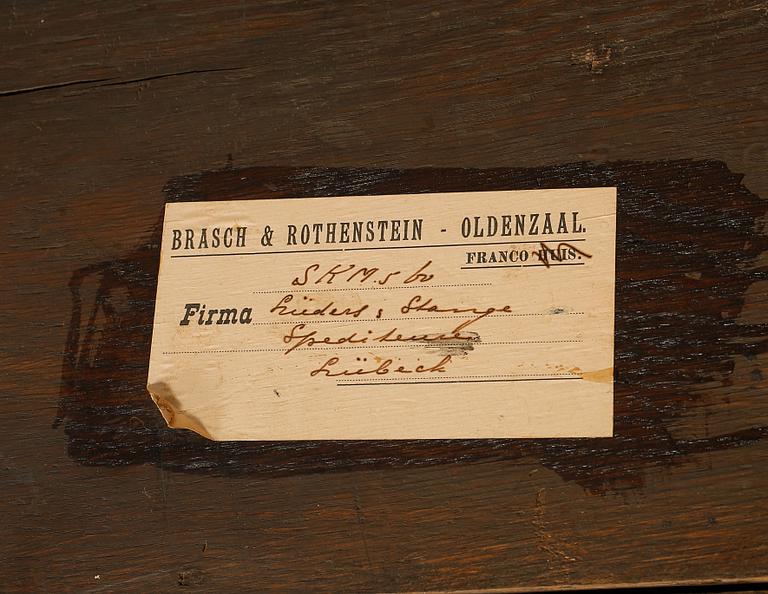 BRASCH & ROTHENSTEIN - OLDENZAAL.
FRANCO HUIS.
SKM.
Firma Lüders, Stange
Spediteure
Lübeck